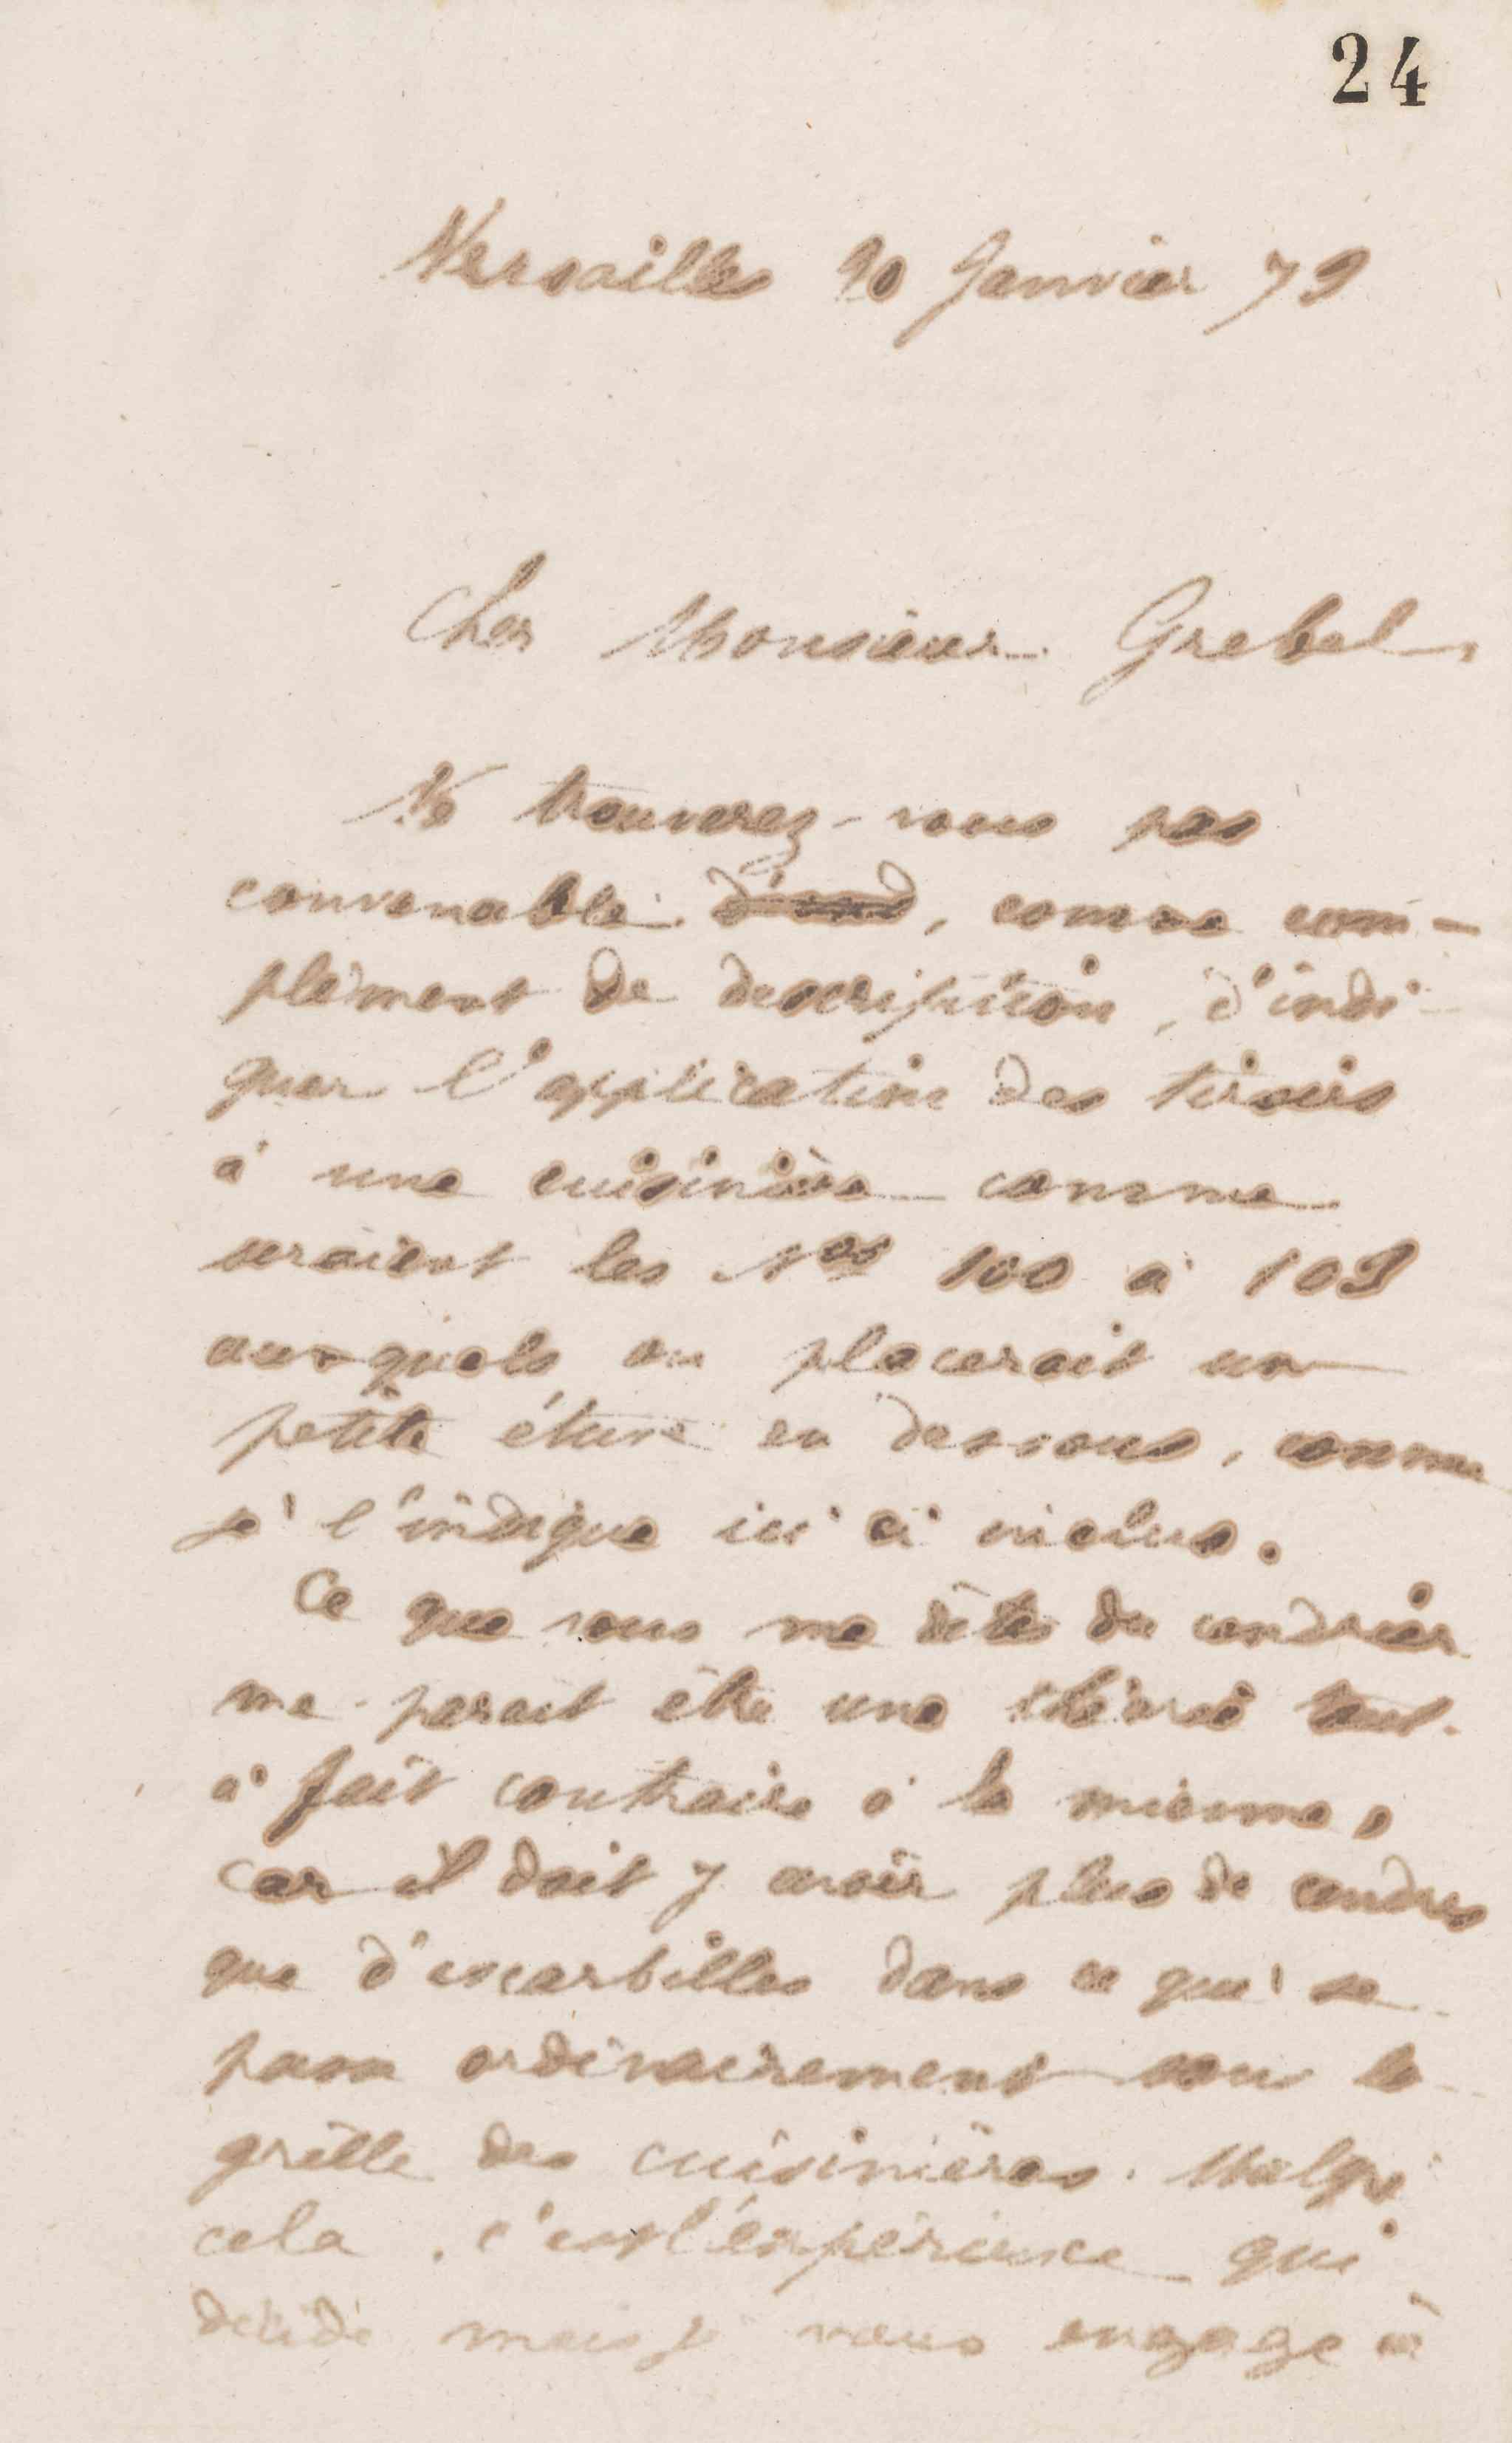 24
Versailles 20 Janvier 79
Cher Monsieur Grebel
Ne trouverez-vous pas
convenable, comme com-
plément de description, d'indi-
quer l'application des tiroirs
à une cuisinière comme
seraient les Nos 100 à 109
auxquels on placerait un
petite étuve en dessous, comme
je l'indique ici ci inclus.
Ce que vous me dites du cendrier
me parait être une théorie tout
à fait contraire à la mienne,
car il doit y avoir plus de cendres
que d'escarbilles dans ce qui se
passe ordinairement sous la
grille des cuisinières. Malgré
cela, c'est l'expérience qui
décide mais je vous engage à